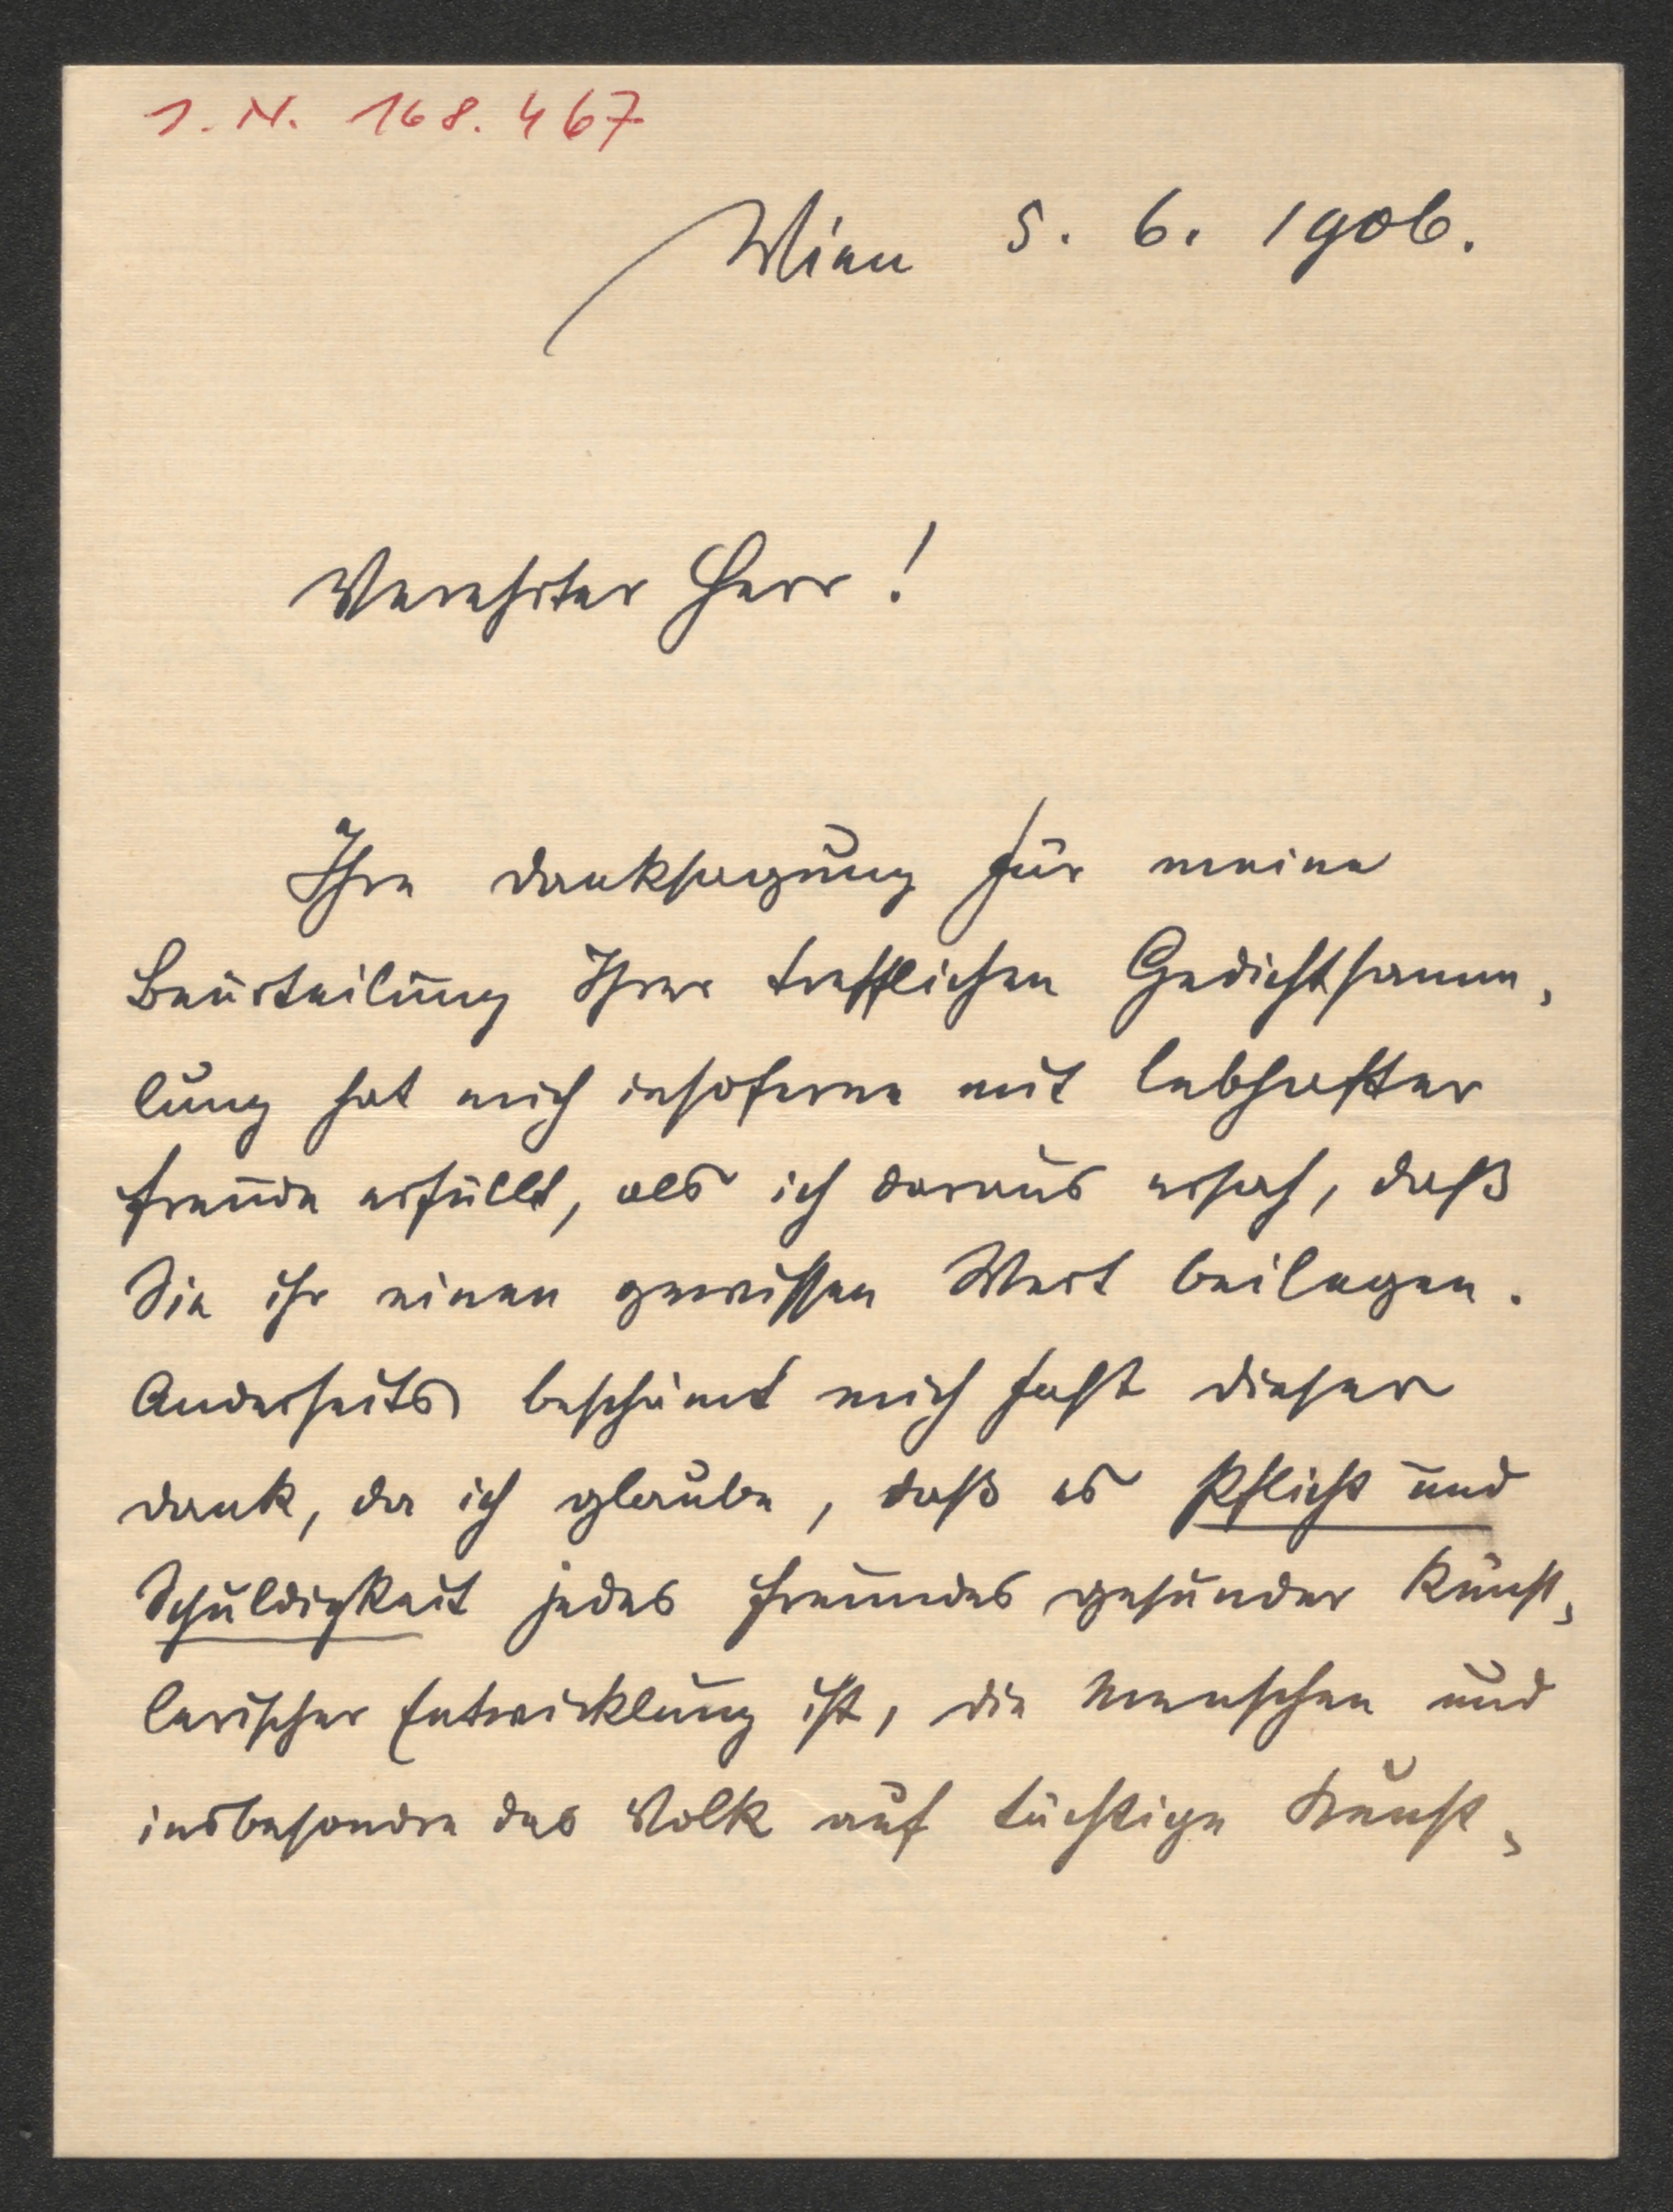 I. N. 168.467
Wien 5. 6. 1906.
Verehrter Herr!
Ihre Danksagung für meine
Beurteilung Ihrer trefflichen Gedichtsamm-
lung hat mich insoferne mit lebhafter
Freude erfüllt, als ich daraus ersah, daß
Sie ihr einen gewissen Wert beilegen.
Anderseits beschämt mich fast dieser
Dank, da ich glaube, daß es Pflicht und
Schuldigkeit jedes Freundes gesunder künst-
lerischer Entwicklung ist, die Menschen und
insbesondre das Volk auf tüchtige Künst-